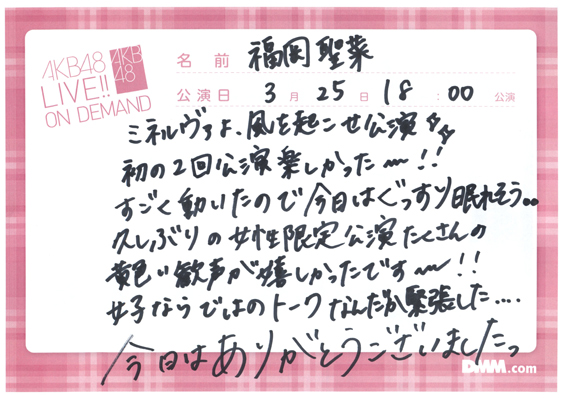 AKB48
LIVE!!
ON DEMAND
AKB
48
名前 福岡聖菜
公演日 3月25日18:00公演
ミネルヴァよ、風を起こせ公演
初の2回公演楽しかったー!!
すごく動いたので今日はぐっすり眠れそう。。
久しぶりの女性限定公演たくさんの
黄色い歓声が嬉しかったですー!!
女子ならではのトークなんだか緊張した....
今日はありがとうございましたっ
DMM.com